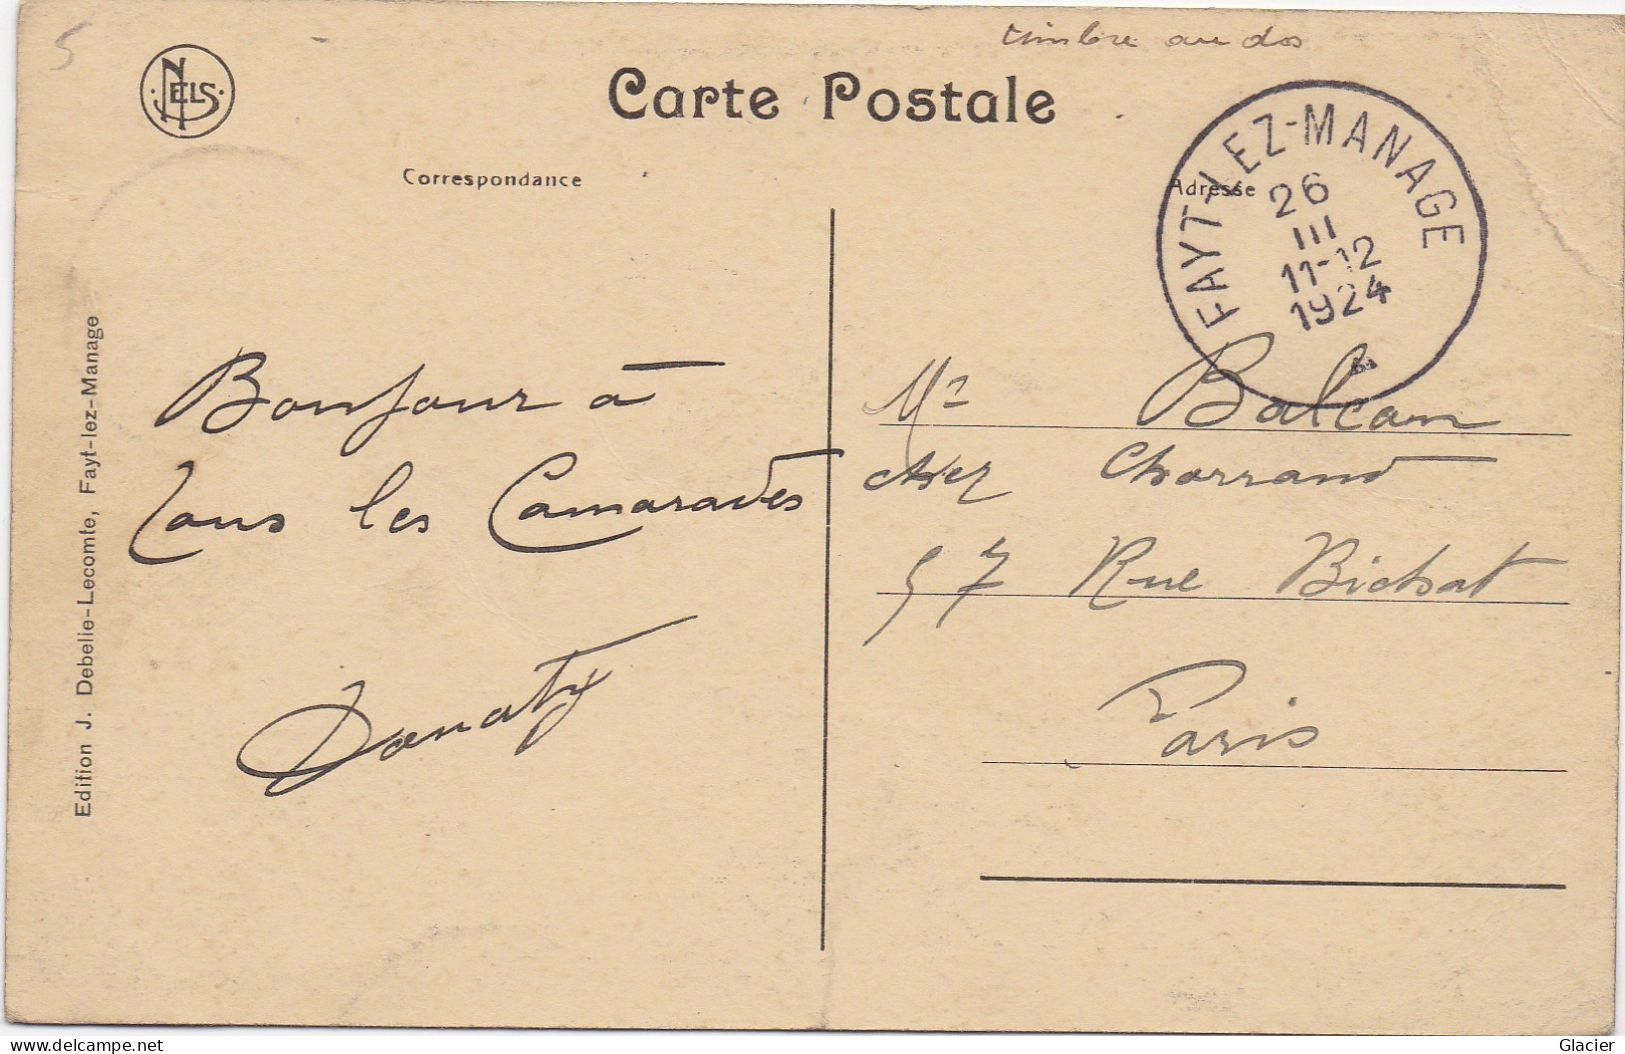 5
timbre au dos
NELS
Carte Postale
Correspondance
Adresse
FAYT-LEZ-MANAGE
26
III
11-12
1924
Bonjour à
Tous les Camarades
Donaty
Mr Balcan
chez Charrand
57 Rue Bichat
Paris
Edition J. Debelie-Lecomte, Fayt-lez-Manage
delcampe.net
Glacier